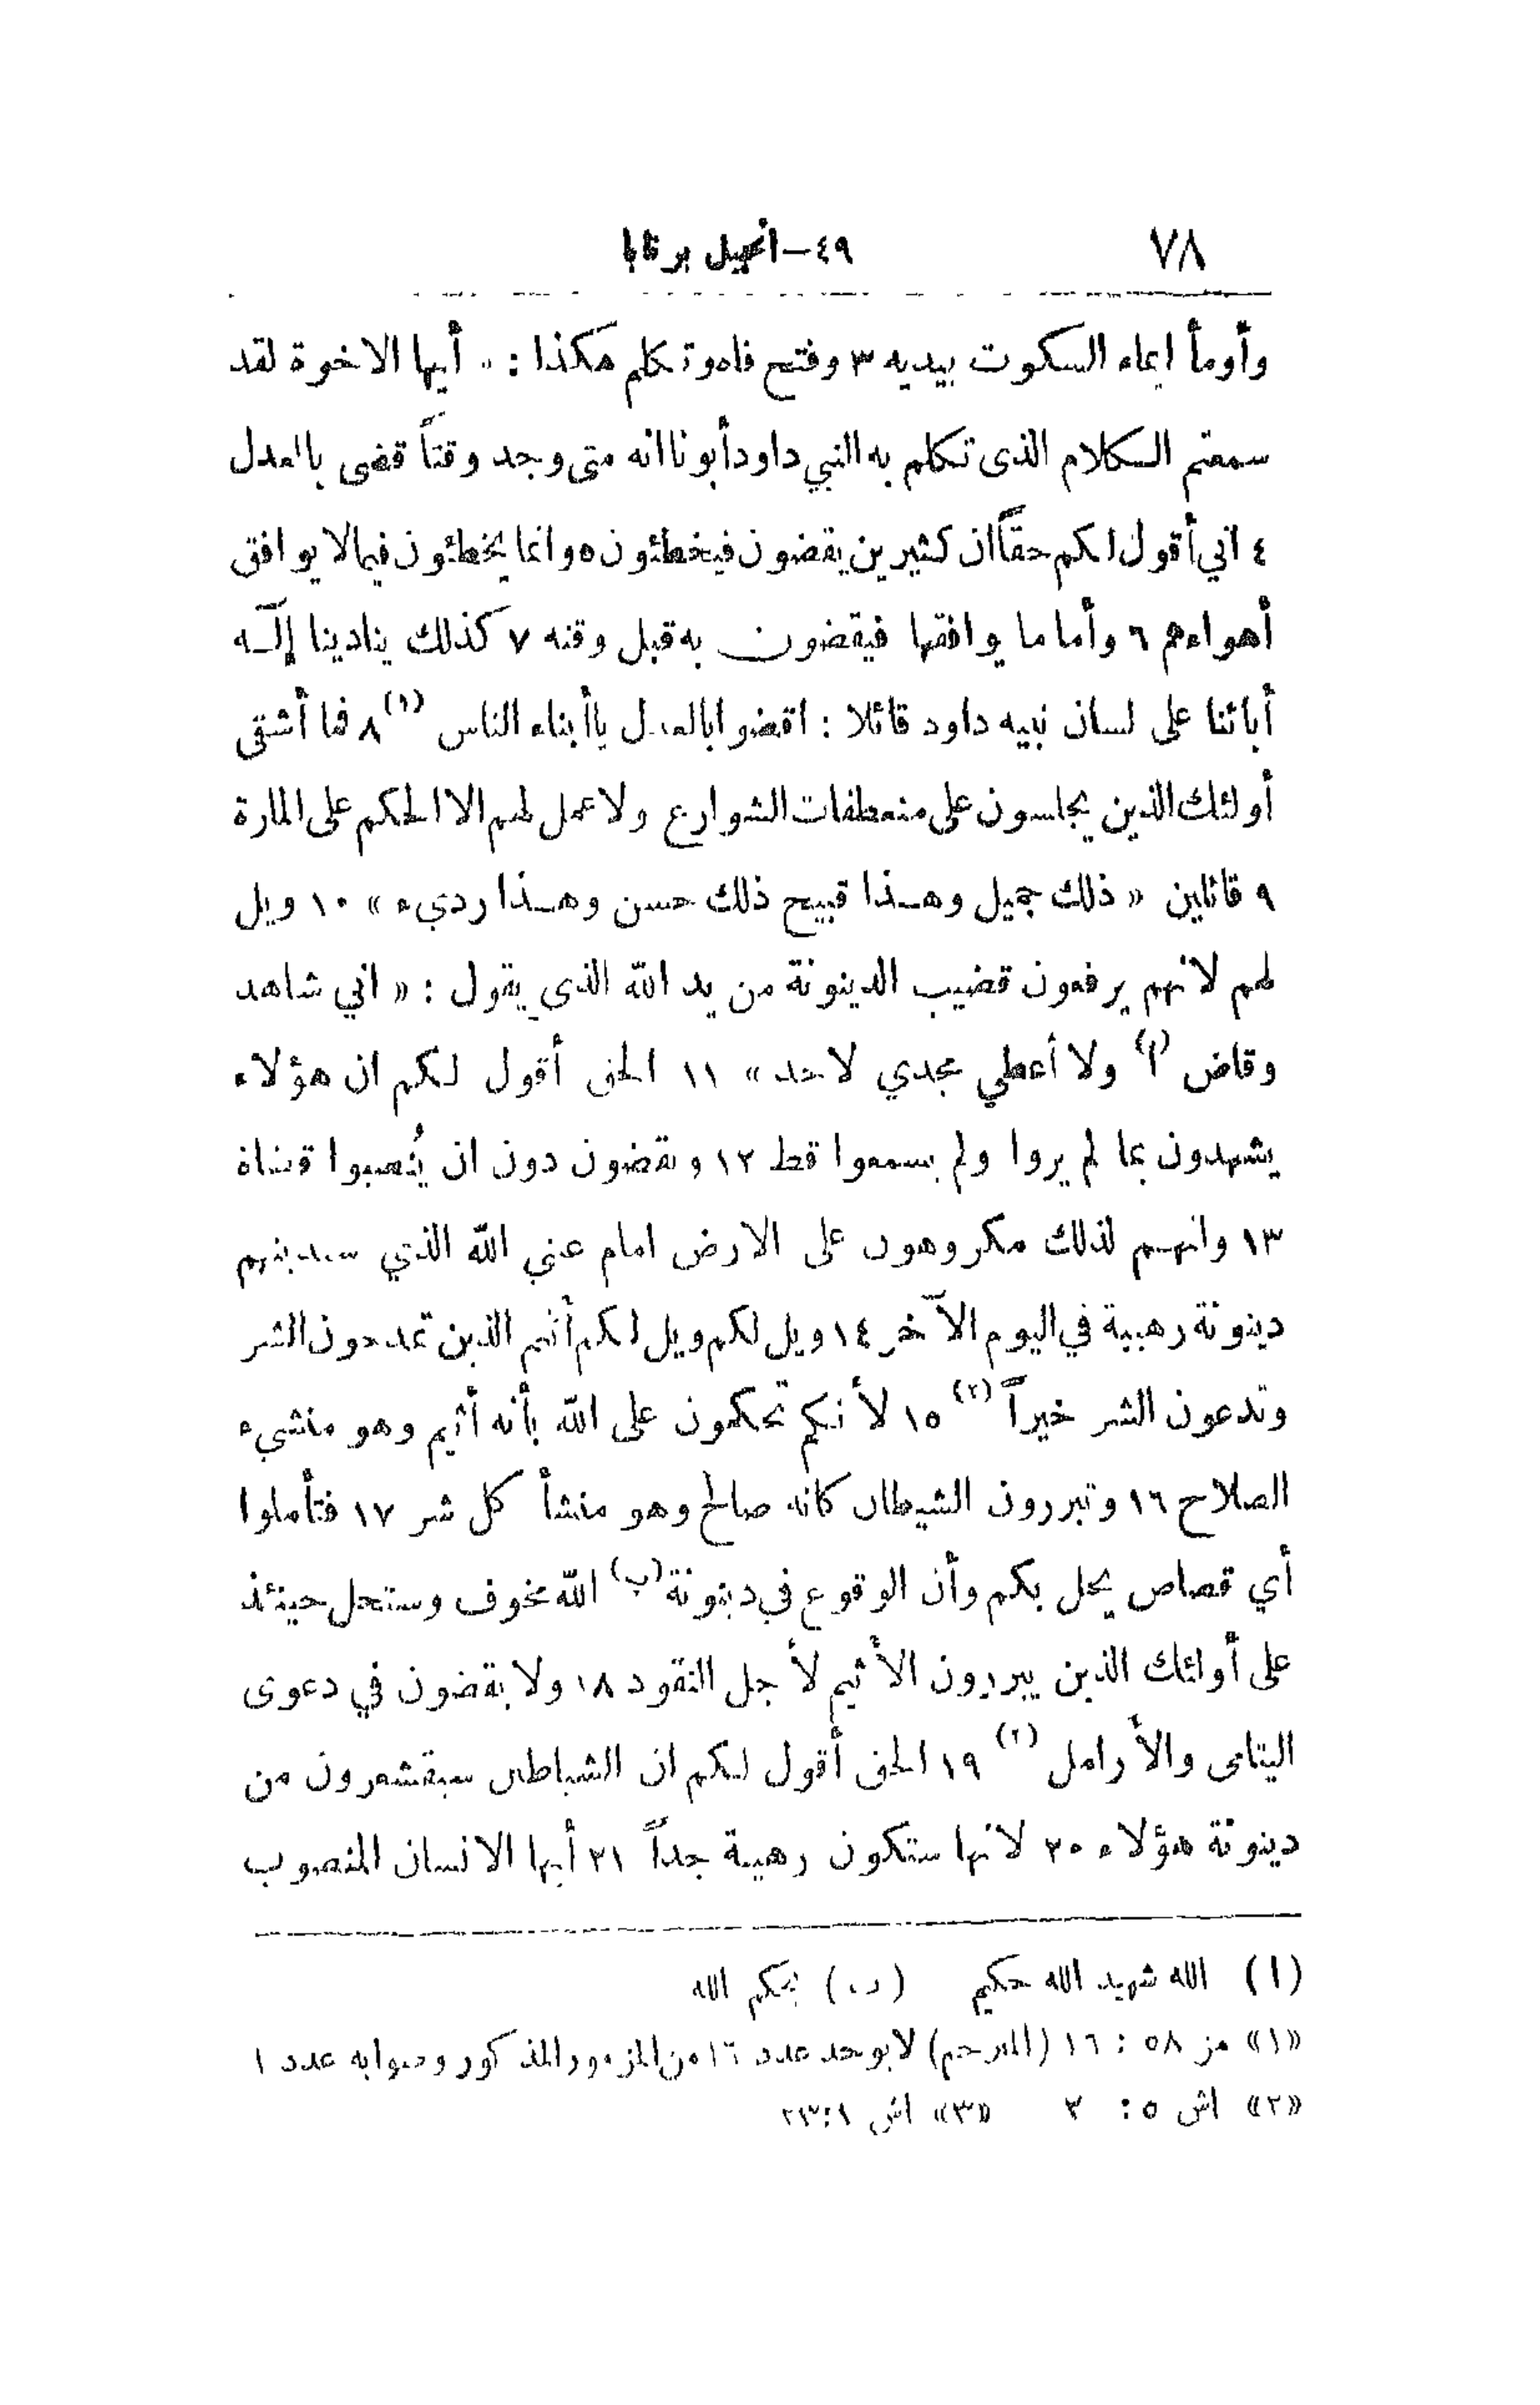 ٧٨ ٤٩–انجيل برنابا
وأومأ ايماء السكوت بيديه ٣ وفتح فاه وتكلم هكذا : أيها الاخوة لقد
سمعتم الكلام الذى تكلم به النبي داود أبونا انه متى وجد وقتاً قضى بالعدل
٤ اني أقول لكم حقاً ان كثيرين يقضون فيخطئون ٥ وانما يخطئون فيما لا يوافق
أهواءهم ٦ وأما ما يوافقها فيقضون به قبل وقته ٧ كذلك ينادينا إلـٰه
أبائنا على لسان نبيه داود قائلا : اقضوا بالعدل يا أبناء الناس (١) ٨ فما أشقى
أولئك الذين يجلسون على منعطفات الشوارع ولا عمل لهم الا الحكم على المارة
٩ قائلين « ذلك جميل وهـذا قبيح ذلك حسن وهـذا رديء » ١٠ ويل
لهم لانهم يرفعون قضيب الدينونة من يد الله الذي يقول : « اني شاهد
وقاض (ا) ولا أعطي مجدي لاحد » ١١ الحق أقول لكم ان هؤلاء
يشهدون بما لم يروا ولم يسمعوا قط ١٢ ويقضون دون ان يُنصبوا قضاة
١٣ وانهـم لذلك مكروهون على الارض امام عيني الله الذي سيدينهم
دينونة رهيبة في اليوم الآخر ١٤ ويل لكم ويل لكم أنتم الذين تمدحون الشر
وتدعون الشر خيراً (٢) ١٥ لأنكم تحكمون على الله بأنه أثيم وهو منشيء
الصلاح ١٦ وتبررون الشيطان كانه صالح وهو منشأ كل شر ١٧ فتأملوا
أي قصاص يحل بكم وأن الوقوع في دينونة (ب) الله مخوف وستحل حينئذ
على أولئك الذين يبررون الأثيم لأجل النقود ١٨ ولا يقضون في دعوى
اليتامى والأرامل (٣) ١٩ الحق أقول لكم ان الشياطين سيقشعرون من
دينونة هؤلاء ٢٠ لانها ستكون رهيبة جداً ٢١ أيها الانسان المنصوب
(ا) الله شهيد الله حكيم (ب) بحكم الله
«١» مز ٥٨ : ١٦ (المترجم) لا يوجد عدد ١٦ من المزمور المذكور وصوابه عدد ١
«٢» اش ٥ : ٢ «٣» اش ١:٢٣